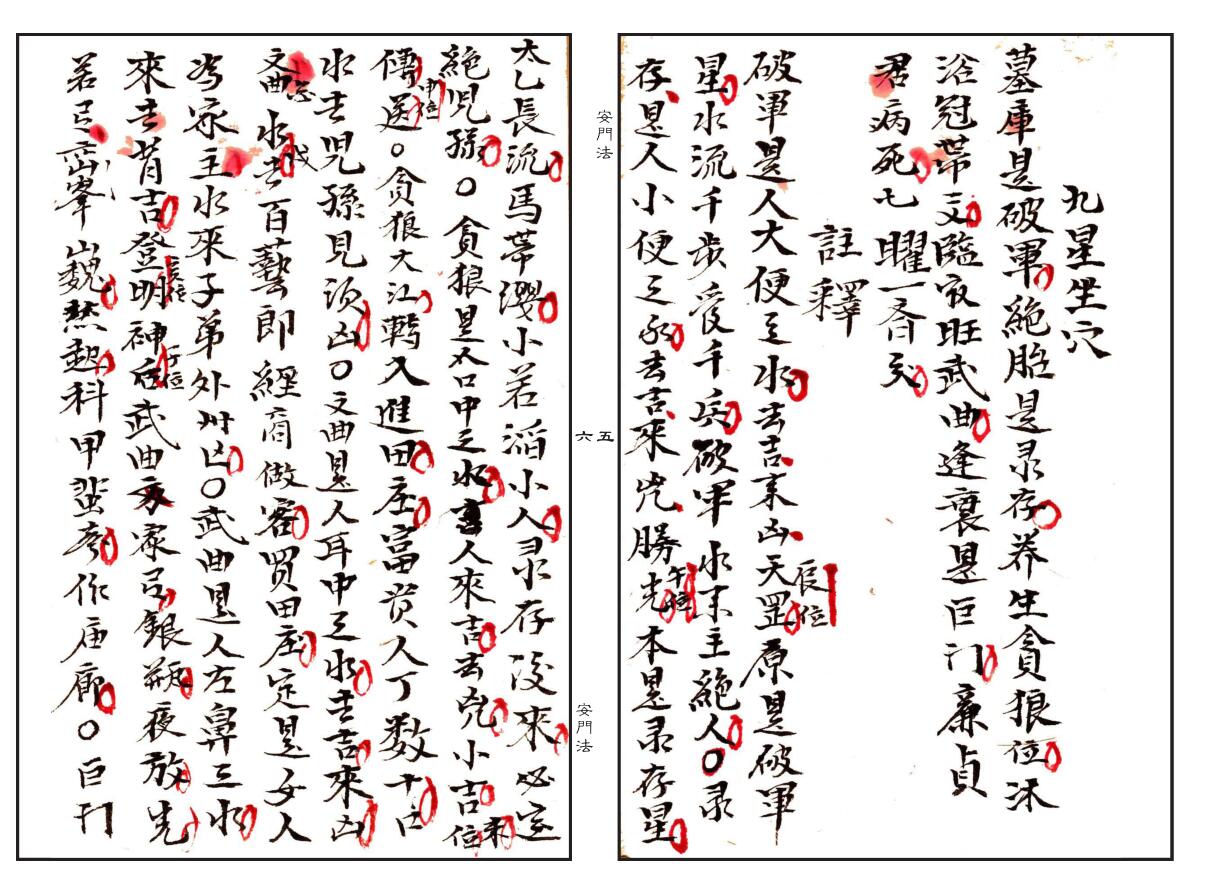 九星坐穴
墓庫是破軍絕胎是录存养生貪狼位沐
浴冠帶文臨官旺武曲逢衰是巨门廉貞
君病死七曜一斉天
註釋
破軍是人大便之水去吉来凶天罡辰位原是破軍
星水流千步受千兵破军水来主絕人〇录
存是人小便之水去吉來凶勝光午位本是录存星
安門法
五六
安門法
太乙長流馬帶 小若 小人录存沒來必定
絕兒孫〇貪狼是人口中之水 人來吉去凶小吉未位
傳送申位。貪狼大江轉入進田庄富贵人丁数十口
水去兒孫見须凶〇文曲是人耳中之水去吉來凶
文曲 水去百藝郎經商做客買田庄定是女人
當家主水來子弟外州凶〇武曲是人左鼻之水
來去皆吉登明亥位神后子位武曲 家 銀瓶夜放光
若 峯巍 起科甲蜚 作庙廊〇巨门